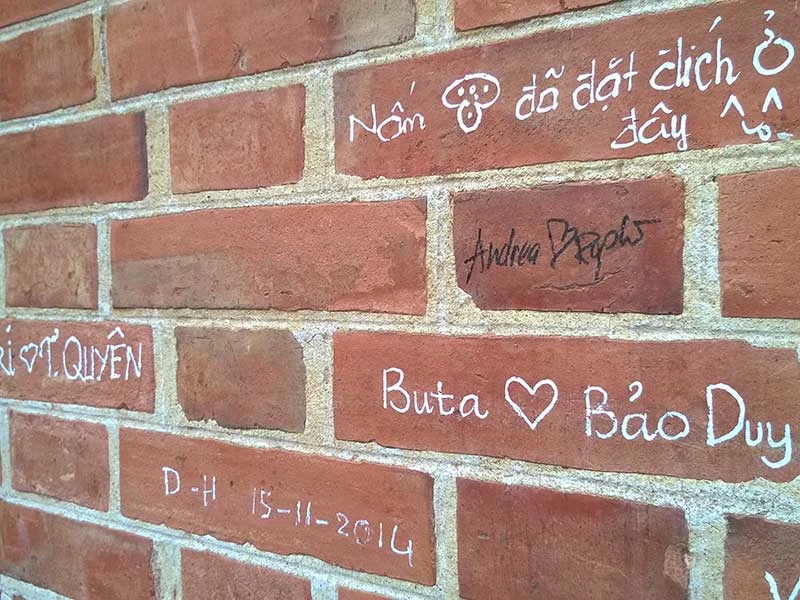 Nấm đã đặt đlích ở
đây ^ô^
Andrea ♡
RI ♡ T.QUYÊN
Buta ♡ Bảo Duy
D-H 15-11-2014